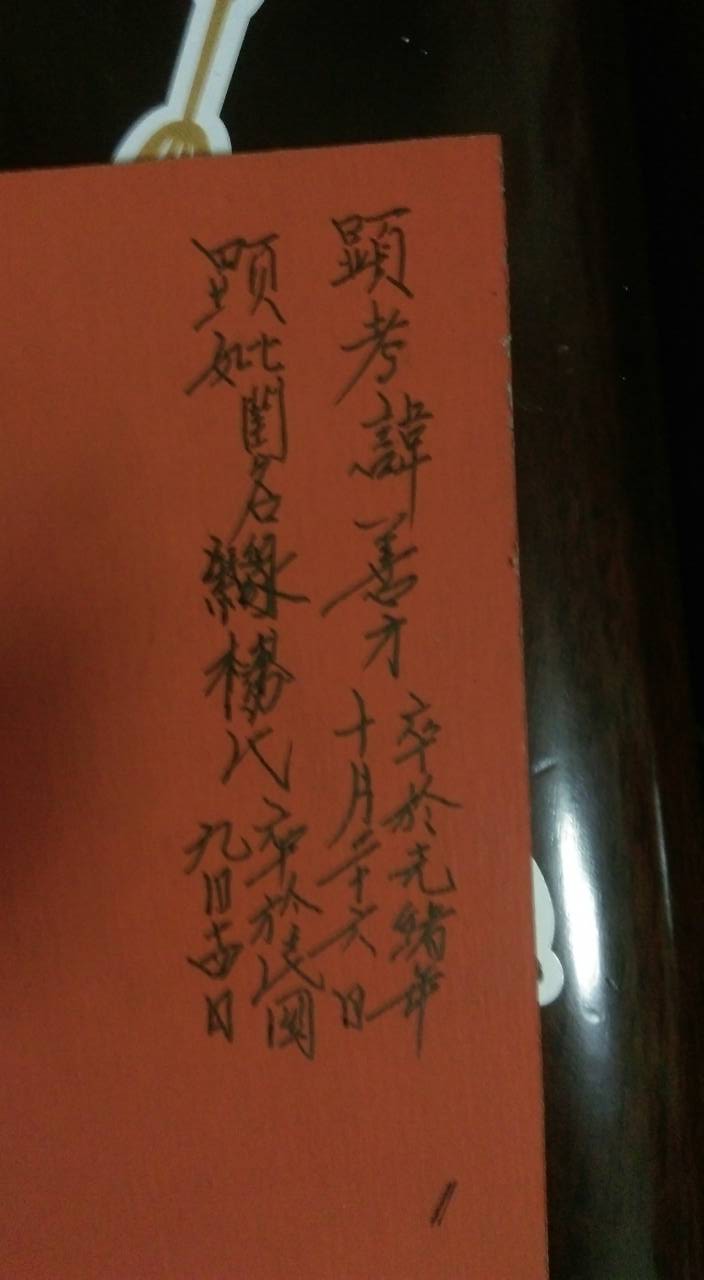 顕考諱善才
卒於光緒年
十月二十六日
顕妣閨名緣楊氏
卒於民國
九月 日